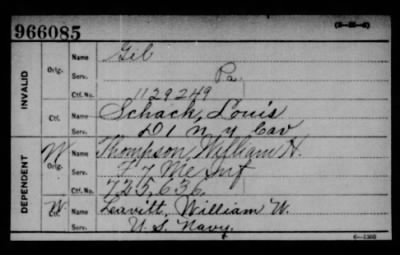 966085 (3-25-6)
INVALID
Orig. Name Gel
Serv. Pa.
Ctf. No. 1129249
Ctf. Name Schack, Louis
Serv. D 1 N Y Cav
DEPENDENT
W Orig. Name Thompson, William H.
Serv. F 7 Me Inf
Ctf. No. 725,636.
W Ctf. Name Leavitt, William W.
Serv. U.S. Navy.